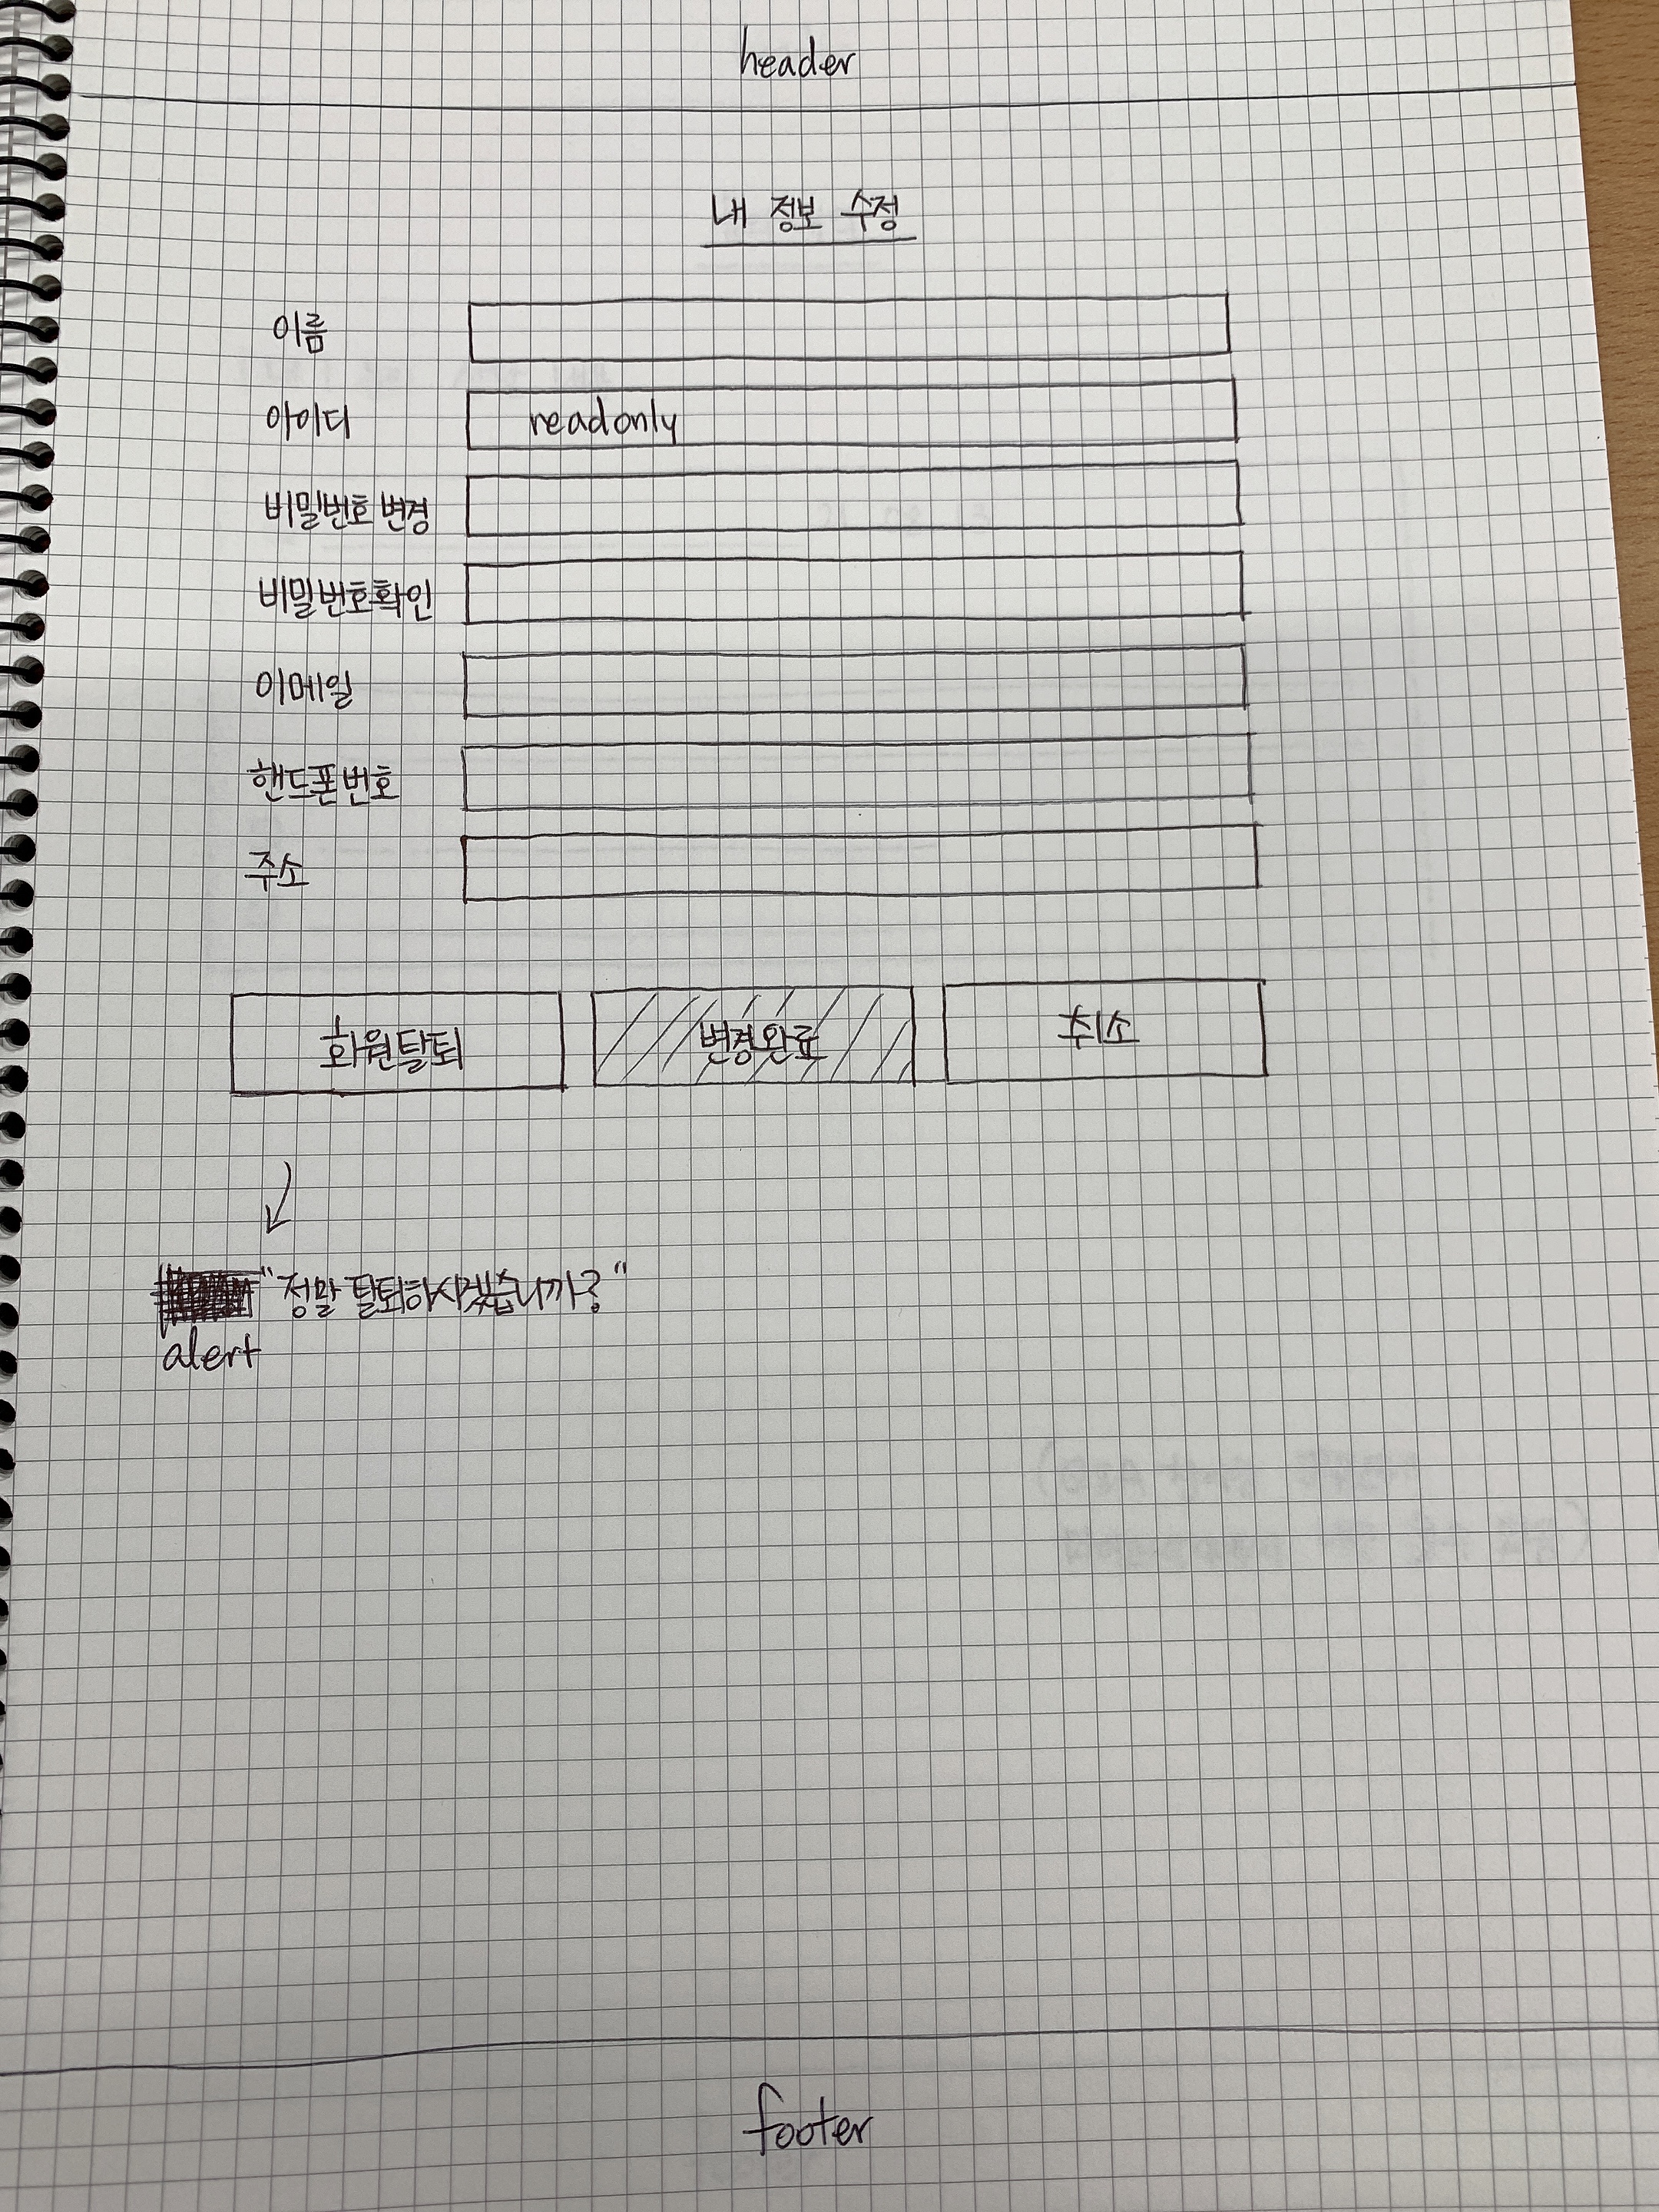 header
내 정보 수정
이름
아이디 readonly
비밀번호 변경
비밀번호확인
이메일
핸드폰번호
주소
회원탈퇴 변경완료 취소
"정말 탈퇴하시겠습니까?"
alert
footer